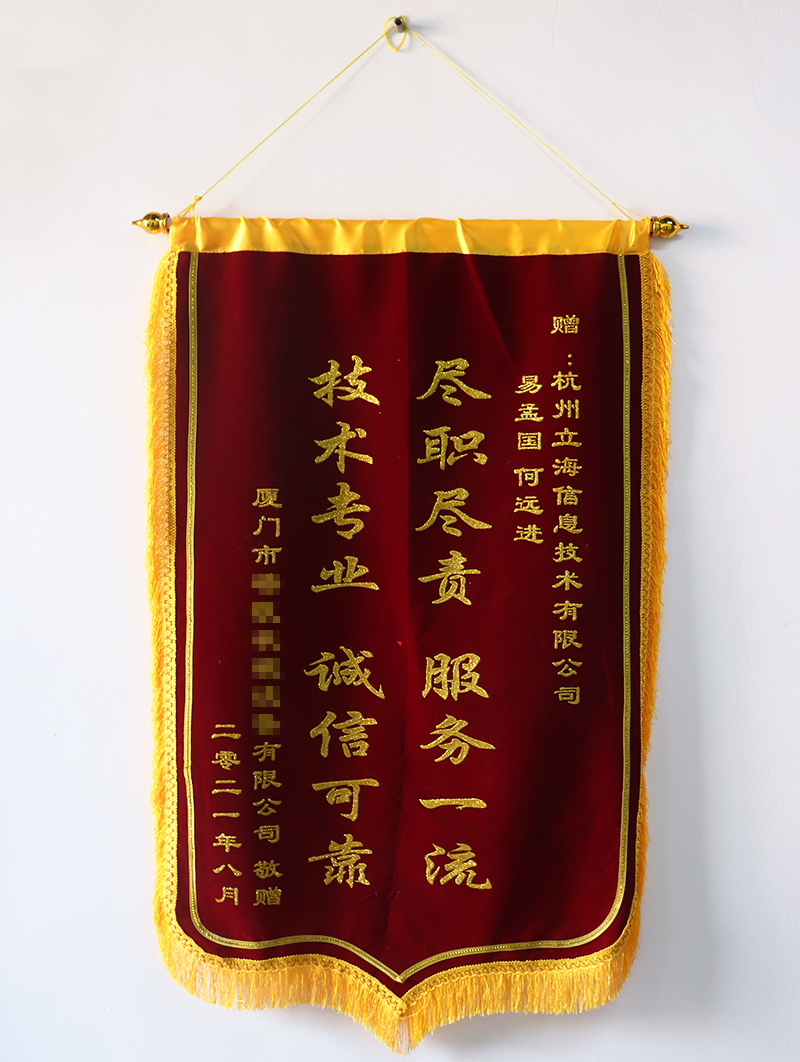 赠：杭州立海信息技术有限公司
易孟国 何远进
尽职尽责 服务一流
技术专业 诚信可靠
厦门市 有限公司 敬赠
二零二一年八月